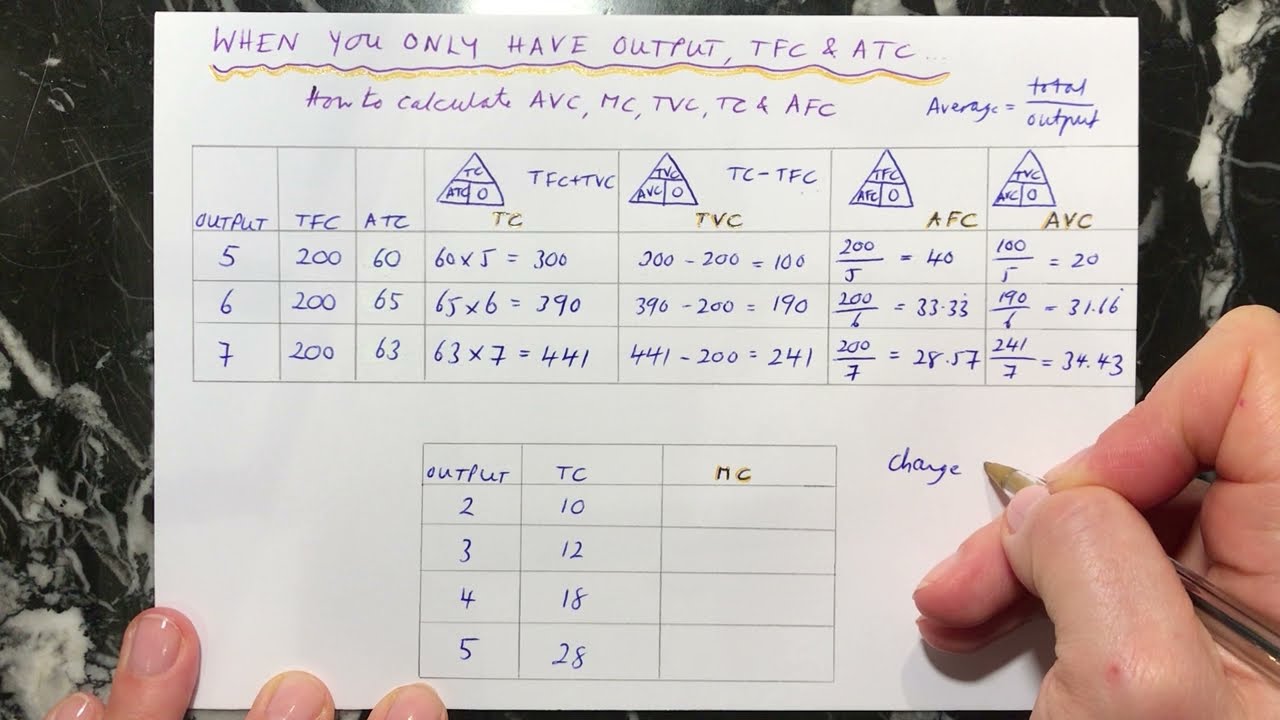 WHEN YOU ONLY HAVE OUTPUT, TFC & ATC...
How to calculate AVC, MC, TVC, TC & AFC
Average = total / output
TC ATC O TFC+TVC TVC AVC O TC-TFC TFC AFC O TVC AVC O
OUTPUT TFC ATC TC TVC AFC AVC
5 200 60 60 x 5 = 300 300 - 200 = 100 200/5 = 40 100/5 = 20
6 200 65 65 x 6 = 390 390 - 200 = 190 200/6 = 33.33̇ 190/6 = 31.66̇
7 200 63 63 x 7 = 441 441 - 200 = 241 200/7 = 28.57 241/7 = 34.43
OUTPUT TC MC
change
2 10
3 12
4 18
5 28